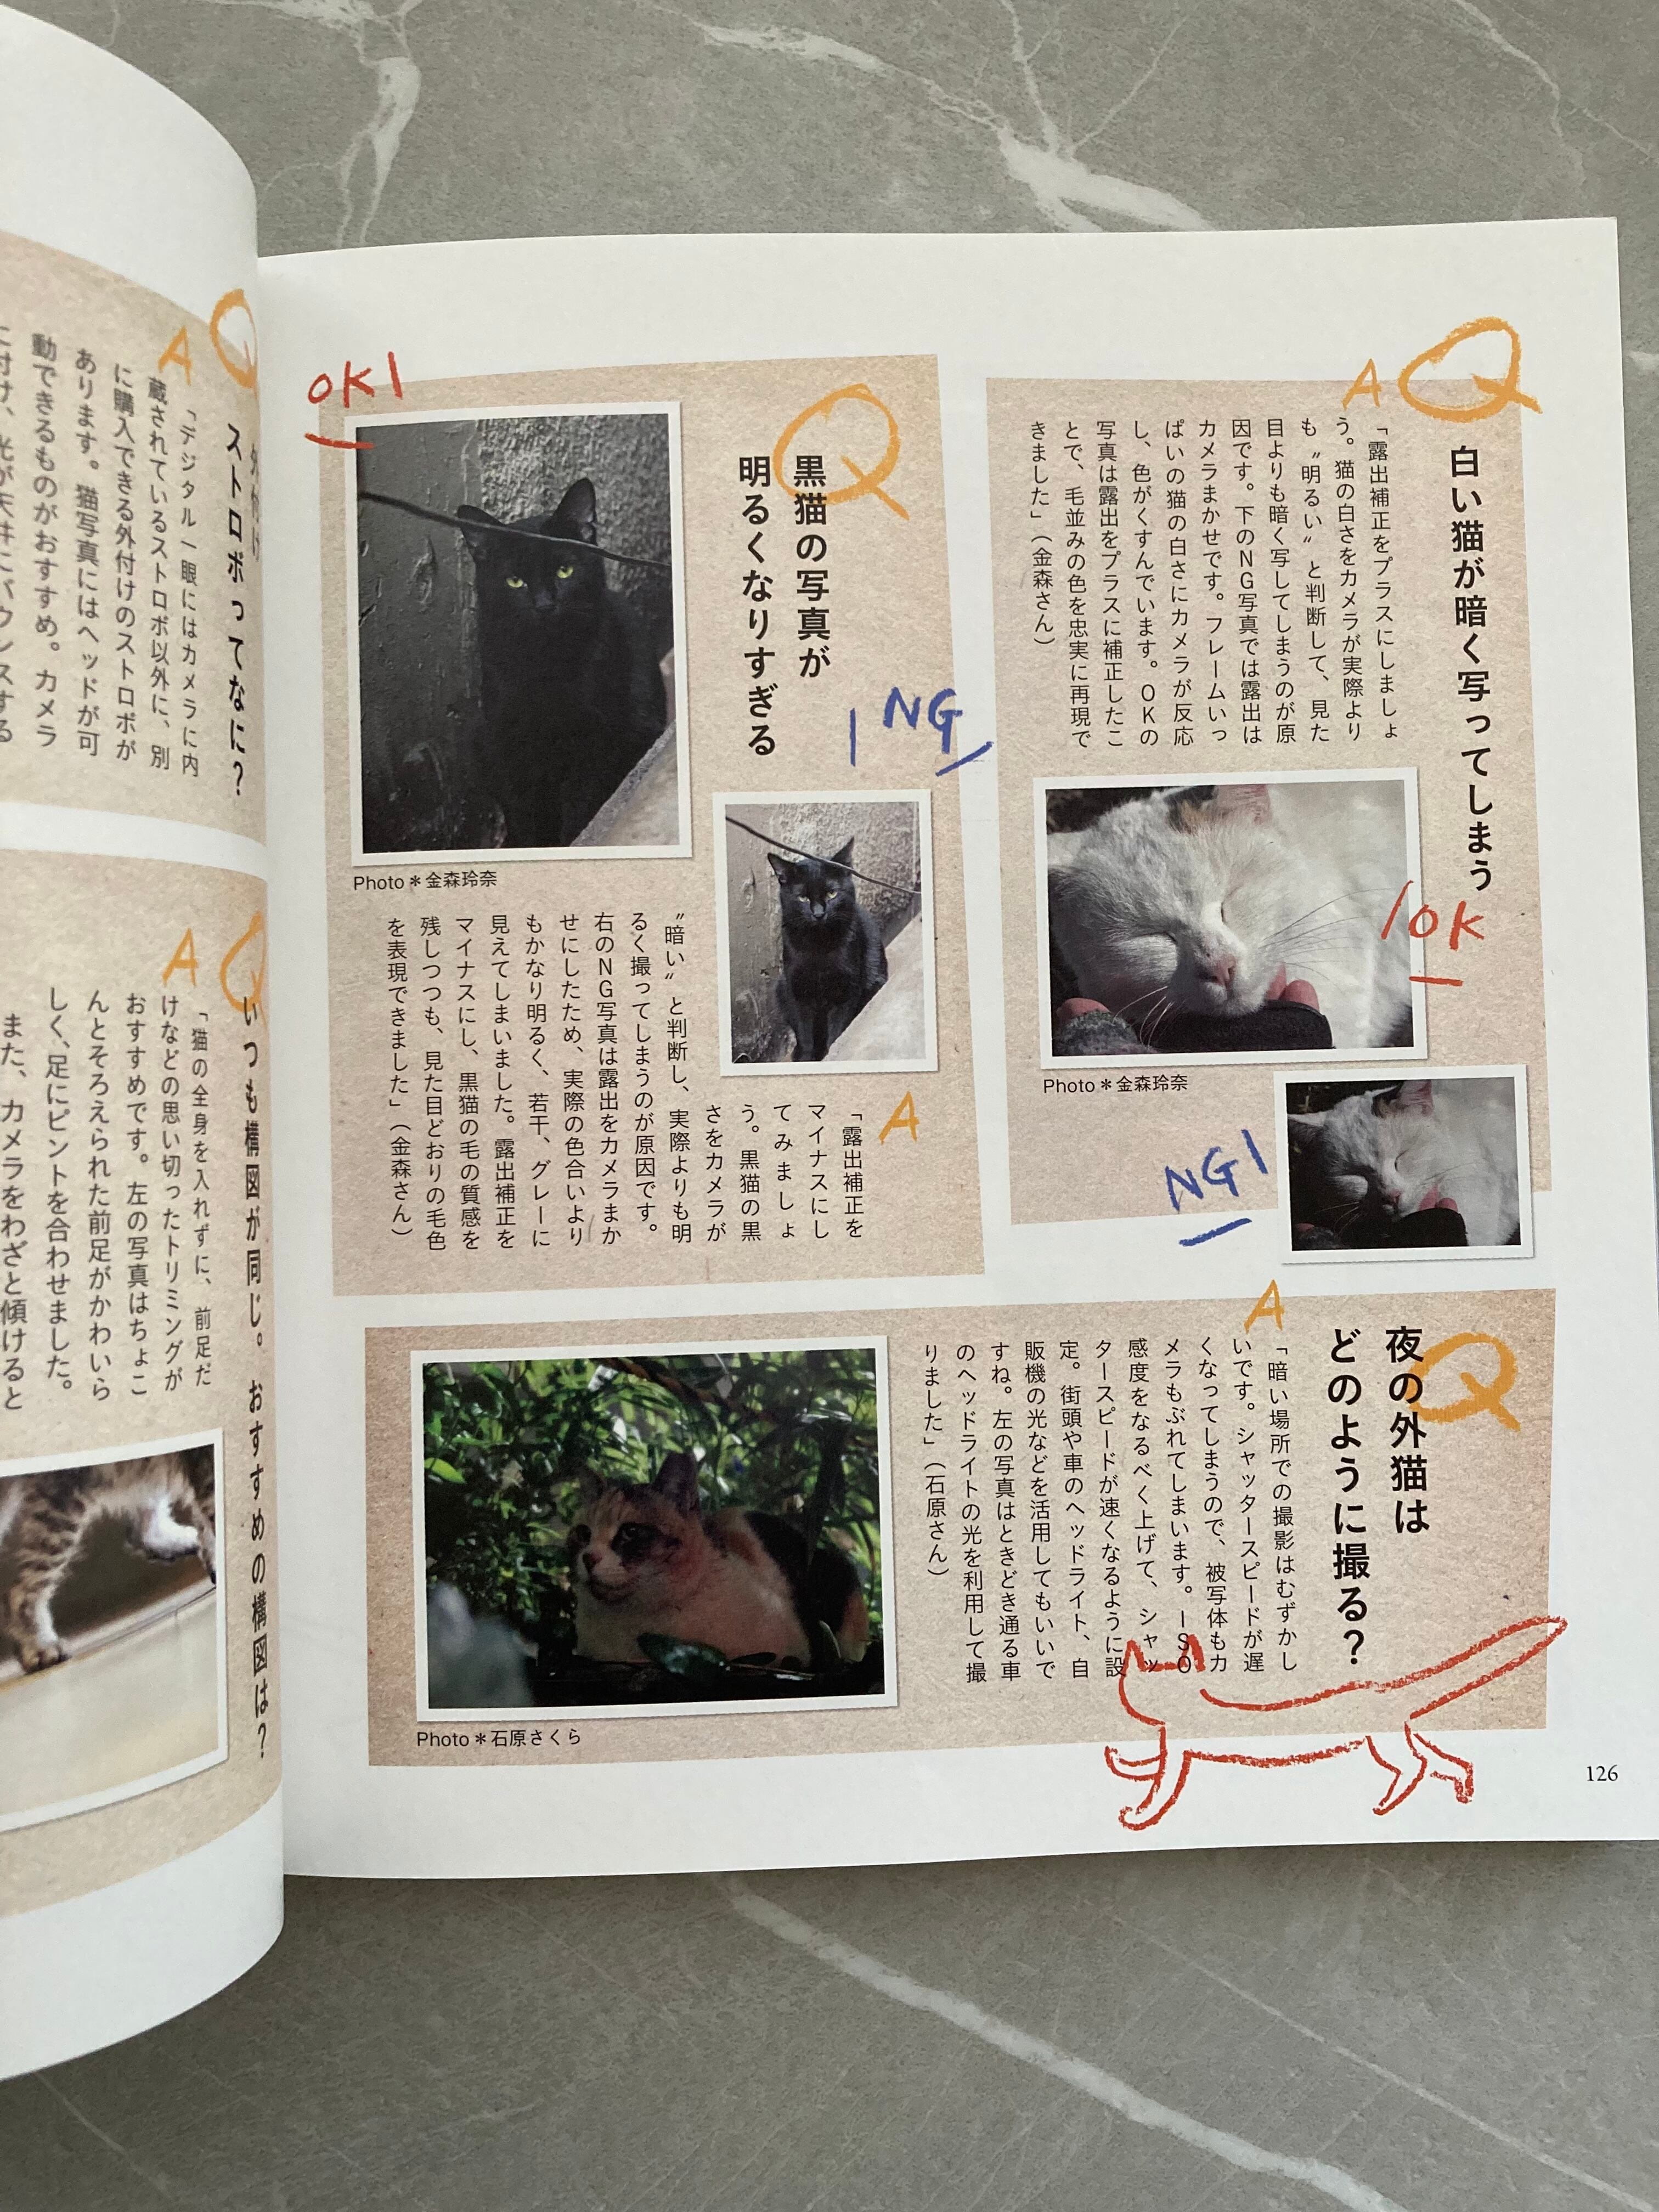 Q
白い猫が暗く写ってしまう
A
「露出補正をプラスにしましょ
う。猫の白さをカメラが実際より
も〝明るい〟と判断して、見た
目よりも暗く写してしまうのが原
因です。下のNG写真では露出は
カメラまかせです。フレームいっ
ぱいの猫の白さにカメラが反応
し、色がくすんでいます。OKの
写真は露出をプラスに補正したこ
とで、毛並みの色を忠実に再現で
きました」(金森さん)
OK
Photo＊金森玲奈
NG
Q
黒猫の写真が
明るくなりすぎる
OK
NG
Photo＊金森玲奈
A
「露出補正を
マイナスにし
てみましょ
う。黒猫の黒
さをカメラが
〝暗い〟と判断し、実際よりも明
るく撮ってしまうのが原因です。
右のNG写真は露出をカメラまか
せにしたため、実際の色合いより
もかなり明るく、若干、グレーに
見えてしまいました。露出補正を
マイナスにし、黒猫の毛の質感を
残しつつも、見た目どおりの毛色
を表現できました」(金森さん)
Q
夜の外猫は
どのように撮る?
A
「暗い場所での撮影はむずかし
いです。シャッタースピードが遅
くなってしまうので、被写体もカ
メラもぶれてしまいます。ISO
感度をなるべく上げて、シャッ
タースピードが速くなるように設
定。街頭や車のヘッドライト、自
販機の光などを活用してもいいで
すね。左の写真はときどき通る車
のヘッドライトの光を利用して撮
りました」(石原さん)
Photo＊石原さくら
126
Q
外付け
ストロボってなに?
A
「デジタル一眼にはカメラに内
蔵されているストロボ以外に、別
に購入できる外付けのストロボが
あります。猫写真にはヘッドが可
動できるものがおすすめ。カメラ
Q
いつも構図が同じ。おすすめの構図は?
A
「猫の全身を入れずに、前足だ
けなどの思い切ったトリミングが
おすすめです。左の写真はちょこ
んとそろえられた前足がかわいら
しく、足にピントを合わせました。
また、カメラをわざと傾けると